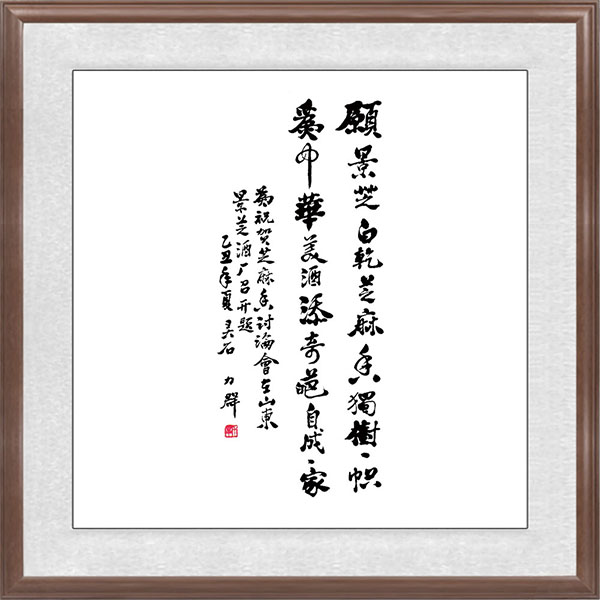 願景芝白乾芝麻香獨樹一幟
爲中華美酒添奇葩自成一家
爲祝贺芝麻香討論會在山東
景芝酒厂召开題
乙丑年夏 灵石 力群